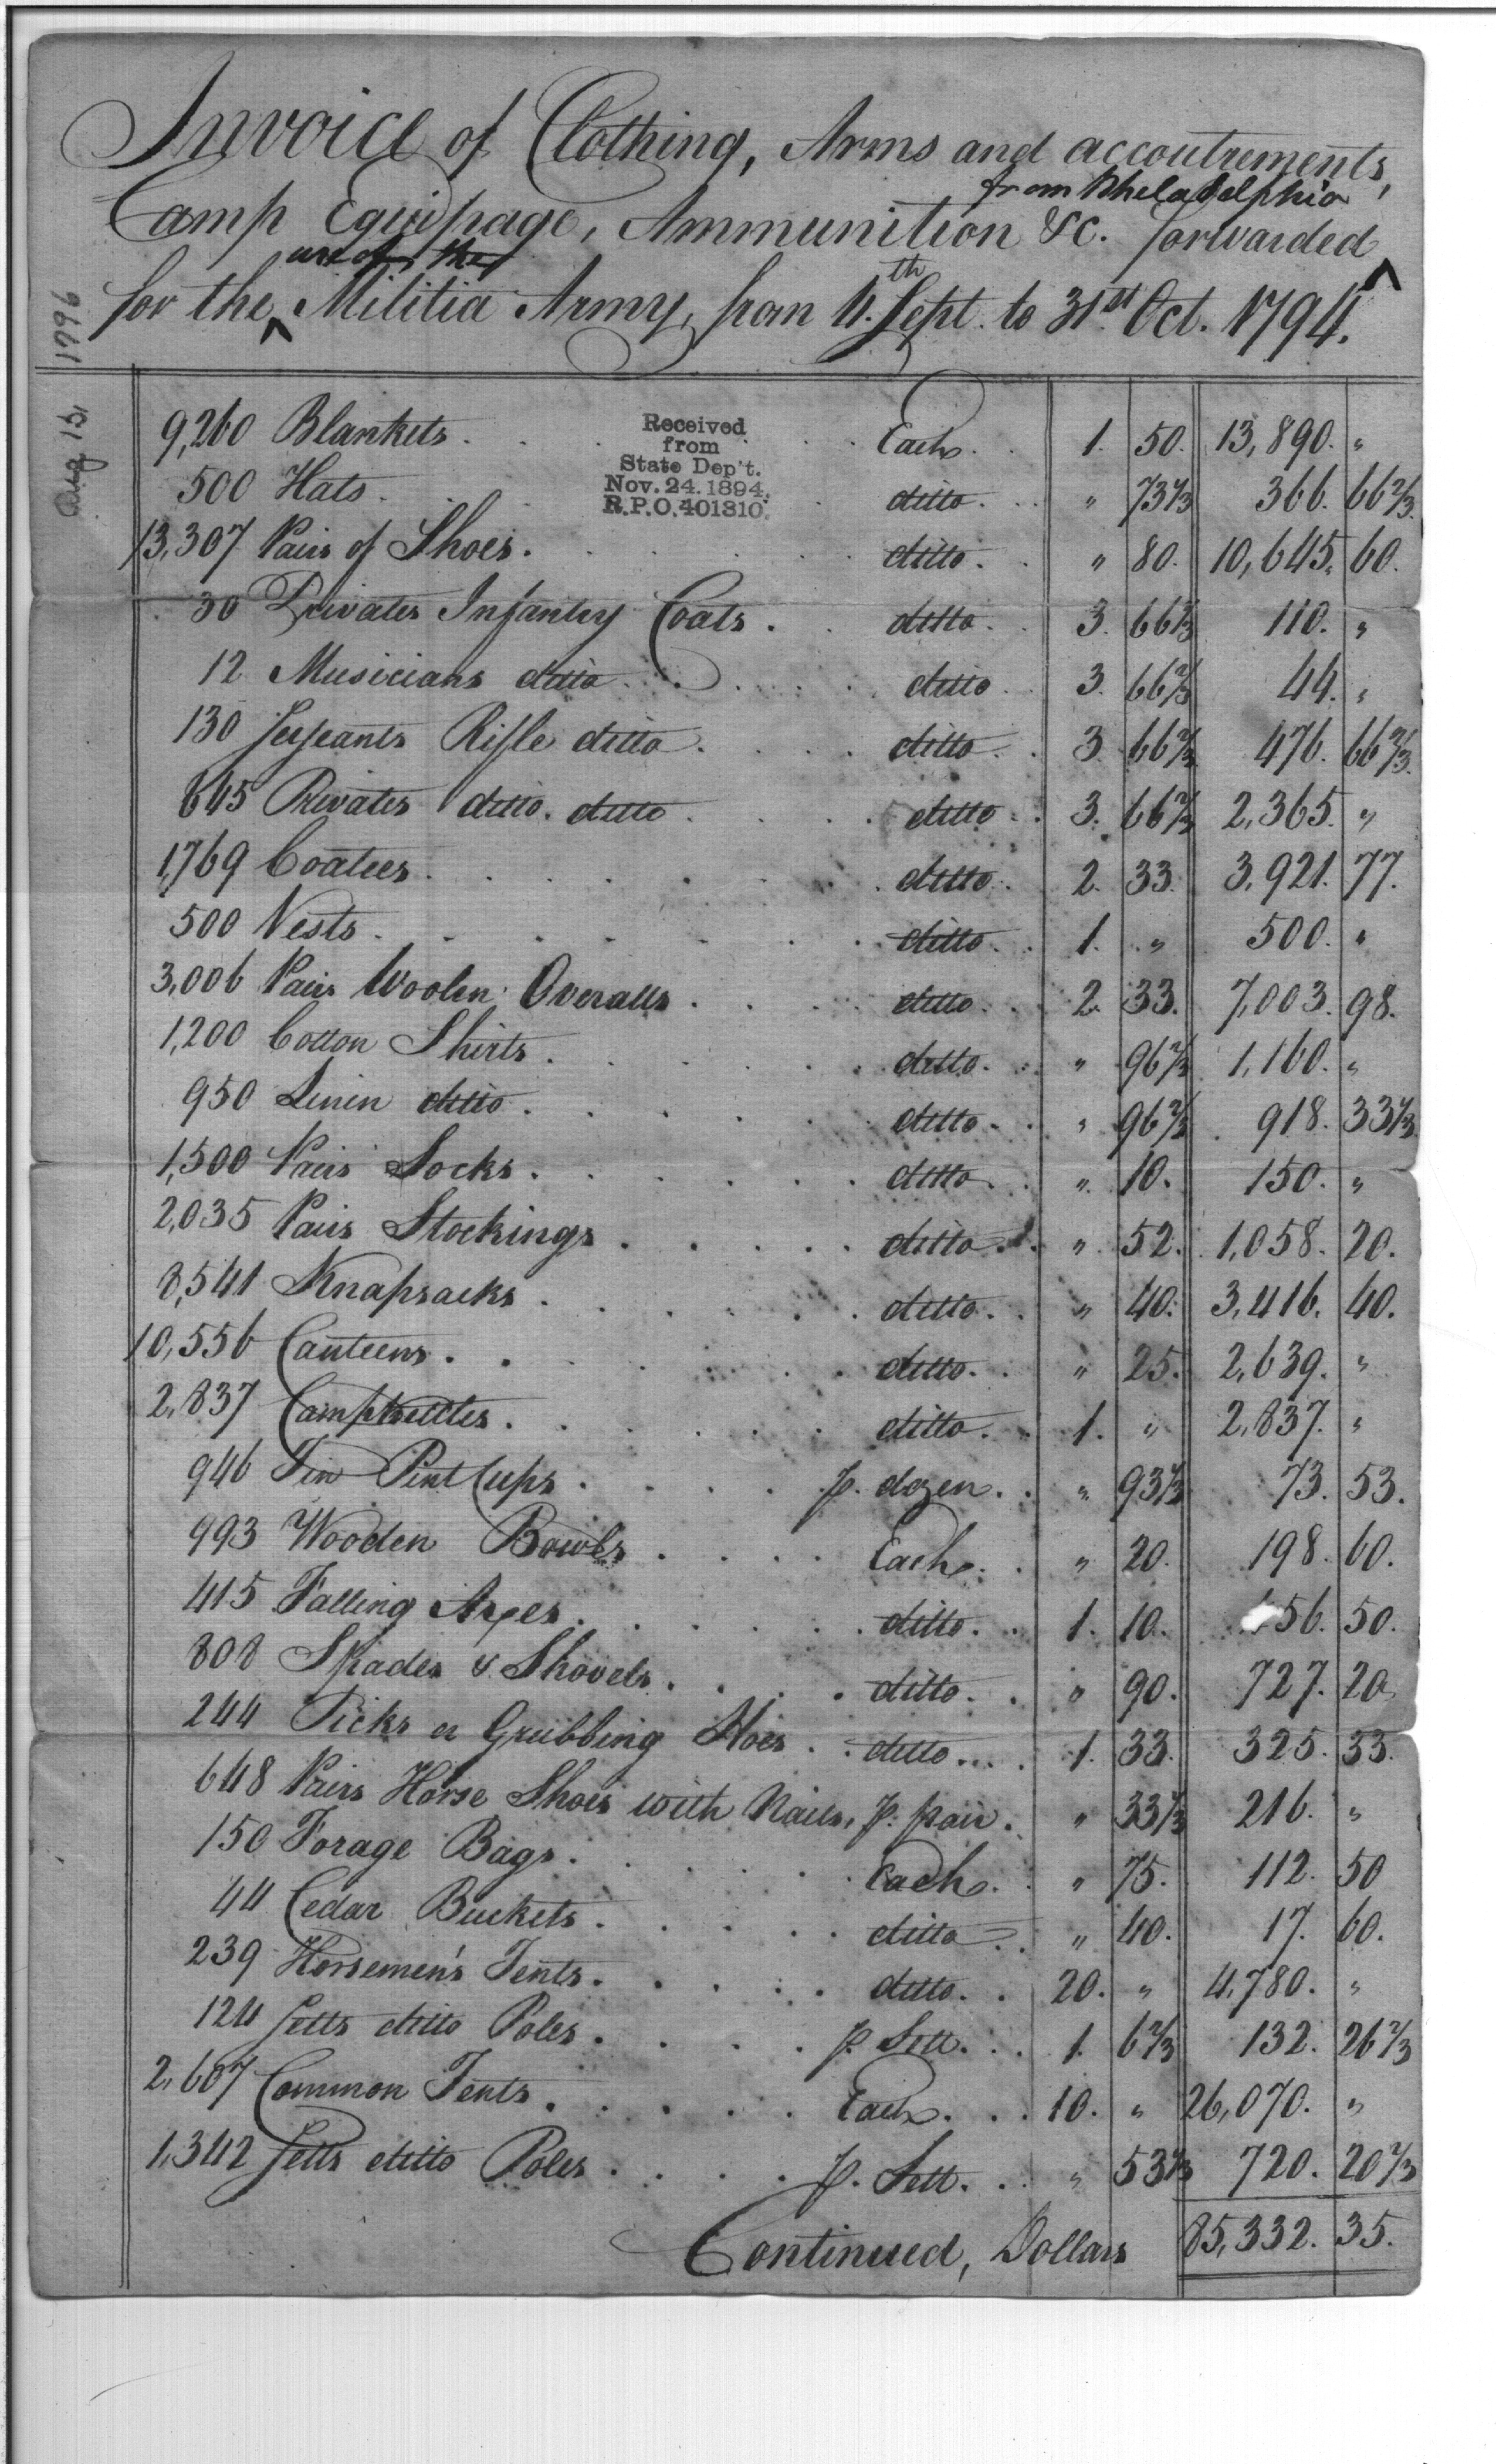 Invoice of Clothing, Arms and accoutrements,
from Pheladelphia
Camp Equipage, Ammunition &c. forwarded ^
use of the
for the ^ Militia Army, from 4.th Sept. to 31st Oct. 1794.
19996
9,260 Blankets. Each. 1. 50. 13,890. "
Received
from
State Dep't.
Nov. 24. 1894.
R.P.O. 401810.
500 Hats. ditto. " 73 1/3 366. 66 2/3.
13,307 Pairs of Shoes. ditto. " 80. 10,645. 60.
30 Privates Infantry Coats. ditto. 3. 66 2/3 110. "
12 Musicians ditto. ditto 3. 66 2/3 44. "
130 Serjeants Rifle ditto. ditto. 3. 66 2/3 476. 66 2/3.
645 Privates ditto. ditto. ditto. 3. 66 2/3 2,365. "
1,769 Coatees. ditto. 2. 33. 3,921. 77.
500 Vests. ditto. 1. " 500. "
3,006 Pairs Woolen Overalls. ditto. 2. 33. 7,003. 98.
1,200 Cotton Shirts. ditto. " 96 2/3 1,160. "
950 Linen ditto. ditto. " 96 2/3 918. 33 1/3.
1,500 Pairs Socks. ditto. " 10. 150. "
2,035 Pairs Stockings. ditto. " 52. 1,058. 20.
8,541 Knapsacks. ditto. " 40. 3,416. 40.
10,556 Canteens. ditto. " 25. 2,639. "
2,837 Campkettles. ditto. 1. " 2,837. "
946 Tin Pint Cups. p. dozen. " 93 1/3 73. 53.
993 Wooden Bowls. Each. " 20. 198. 60.
415 Falling Axes. ditto. 1. 10. 56. 50.
808 Spades & Shovels. ditto. " 90. 727. 20.
244 Picks or Grubbing Hoes. ditto. 1. 33. 325. 33.
648 Pairs Horse Shoes with Nails, p. pair. " 33 1/3 216. "
150 Forage Bags. Each. " 75. 112. 50
44 Cedar Buckets. ditto. " 40. 17. 60.
239 Horsemen's Tents. ditto. 20. " 4,780. "
124 Setts ditto Poles. p. Sett. 1. 6 2/3 132. 26 2/3
2,607 Common Tents. Each. 10. " 26,070. "
1,342 Setts ditto Poles. p. Sett. " 53 1/3 720. 20 2/3
Continued, Dollars 85,332. 35.